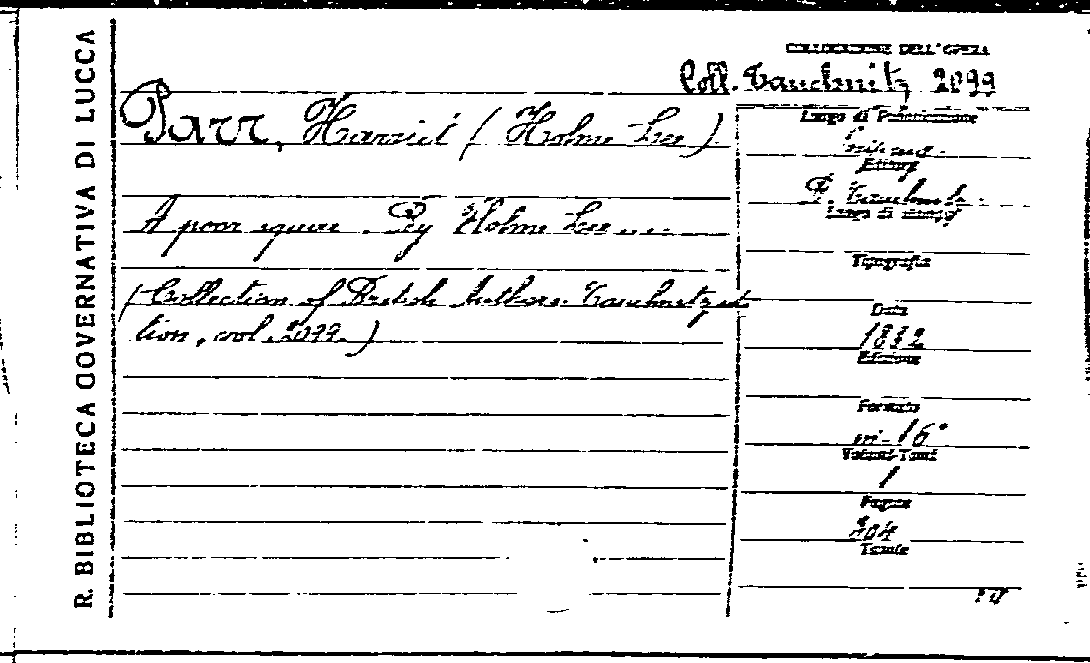 R. BIBLIOTECA GOVERNATIVA DI LUCCA
COLLOCAZIONE DELL'OPERA
Coll. Tauchnitz 2099
Parr, Harriet (Holme Lee)
A poor squire. By Holme Lee
(Collection of British Authors. Tauchnitz edi
tion, vol. 2099.)
Luogo di Pubblicazione
Editore
B. Tauchnitz.
Luogo di stampa
Tipografia
Data
1882
Edizione
Formato
in-16°
Volumi-Tomi
1
Pagine
304
Tavole